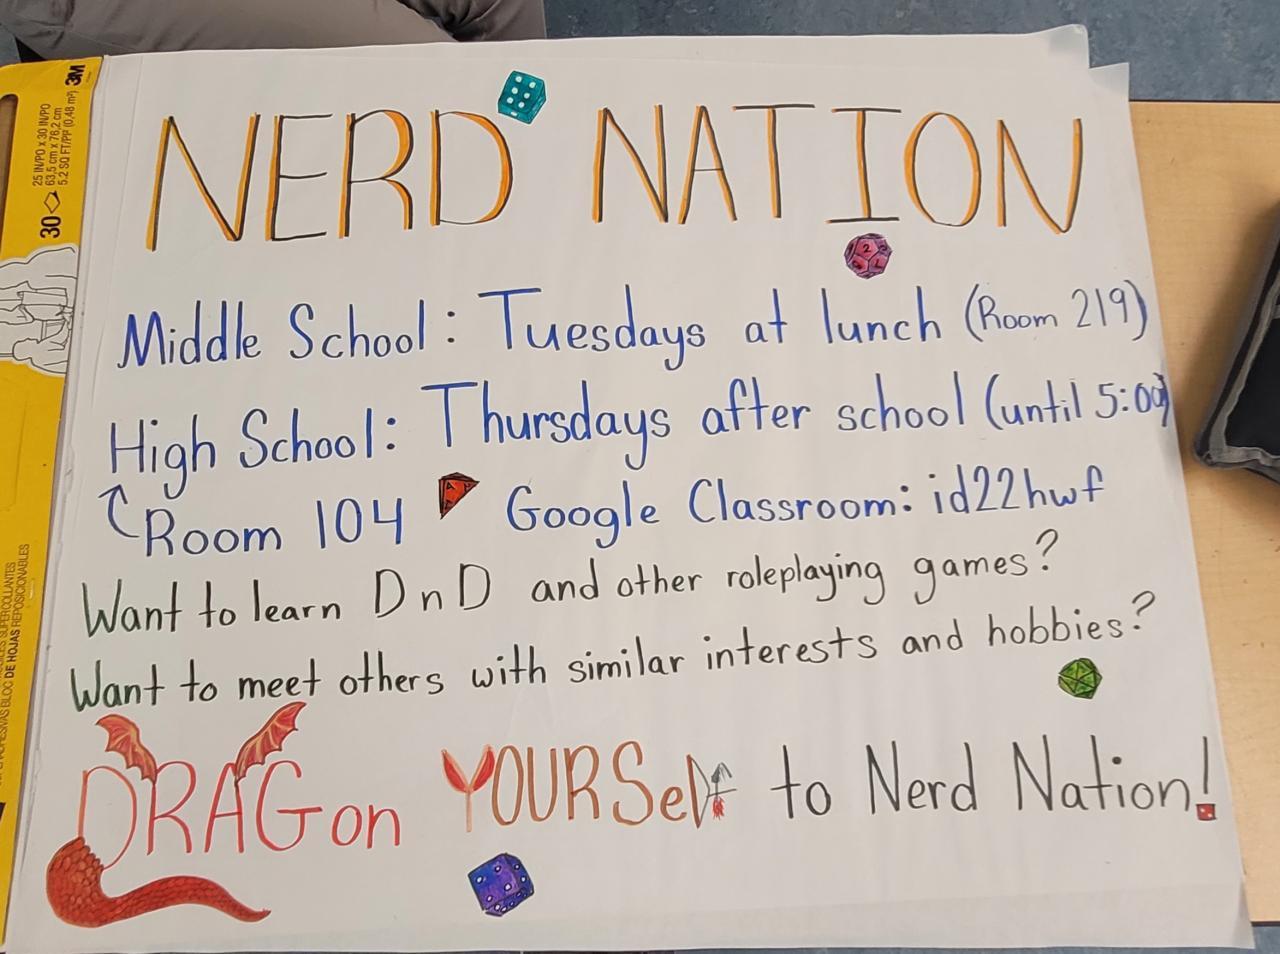 NERD NATION
Middle School: Tuesdays at lunch (Room 219)
High School: Thursdays after school (until 5:00)
Room 104 Google Classroom: id22hwf
Want to learn DnD and other roleplaying games?
Want to meet others with similar interests and hobbies?
DRAGon YOURSelf to Nerd Nation!
3M
25 IN/PO x 30 IN/PO
63,5 cm x 76,2 cm
5.2 SQ FT/PI² (0,48 m²)
30
DE HOJAS REPOSICIONABLES